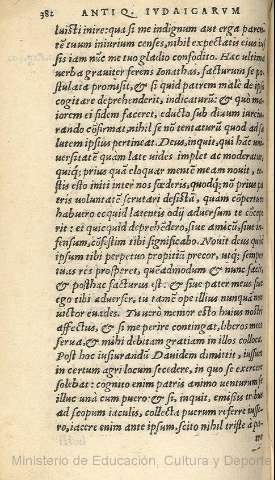 382 ANTIQ. IVDAICARVM
luisti inire: qua si me indignum aut erga paren
tē tuum iniurium censes, nihil expectatis eius ius
sis iam nūc me tuo gladio confodito. Hæc ultima
uerba grauiter ferens Ionathas, facturum se po
stulata promisit, & si quid patrem male de ipso
cogitare deprehenderit, indicaturū: & quò ma
iorem ei fidem faceret, educto sub dium iureiu
rando cōfirmat, nihil se nō tentaturū quod ad sa
lutem ipsius pertineat. Deus, inquit, qui hāc uni
uersitatē quam late uides implet ac moderatur,
quiq; prius quā eloquar mentē meam nouit, te
stis esto initi inter nos fœderis, quodq; nō prius pa
tris uoluntatē scrutari desistā, quàm compertum
habuero ecquid latentis odij aduersum te cōcepe
rit: et quicquid deprehēdero, siue amicū, siue in
fensum, cōfestim tibi significabo. Nouit deus quòd
ipsum tibi perpetuo propitiū precor, utq; semper
tuas res prosperet, quēadmodum & nunc facit,
& posthac facturus est: & siue pater meus siue
ego tibi aduersēr, tu tamē ope illius nunquā non
uictor euades. Tu uerò memor esto huius nostri
affectus, & si me perire contingat, liberos meos
serua, & mihi debitam gratiam in illos colloca.
Post hoc iusiurandū Dauidem dimittit, iussum
in certum agri locum secedere, in quo se exercere
solebat: cognito enim patris animo uenturum se
illuc unà cum puero: & si, inquit, emissis tribus
ad scopum iaculis, collecta puerum referre iusse-
ro, iacere enim ante ipsum, scito nihil triste à pa-
tre
Ministerio de Educación, Cultura y Deporte